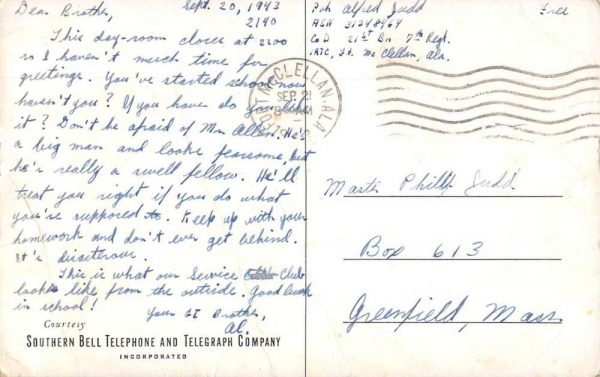 Dear Brother,
Sept. 20, 1943
2140
This day-room closes at 2200
so I haven't much time for
greetings. You've started school now
haven't you? If you have do you like
it? Don't be afraid of Mr. Allen. He's
a big man and looks fearsome, but
he's really a swell fellow. He'll
treat you right if you do what
you're supposed to. Keep up with your
homework and don't ever get behind.
It's disasterous.
This is what our Service Club
looks like from the outside. Good luck
in school!
Your GI Brother,
Al.
Courtesy
SOUTHERN BELL TELEPHONE AND TELEGRAPH COMPANY
INCORPORATED
Pvt. Alfred Judd
ASN 31348464
Co D 21st Bn 7th Regt.
IRTC, Ft. McClellan, Ala.
Free
FORT MCCLELLAN, ALA.
SEP 21
Master Philip Judd
Box 613
Greenfield, Mass.